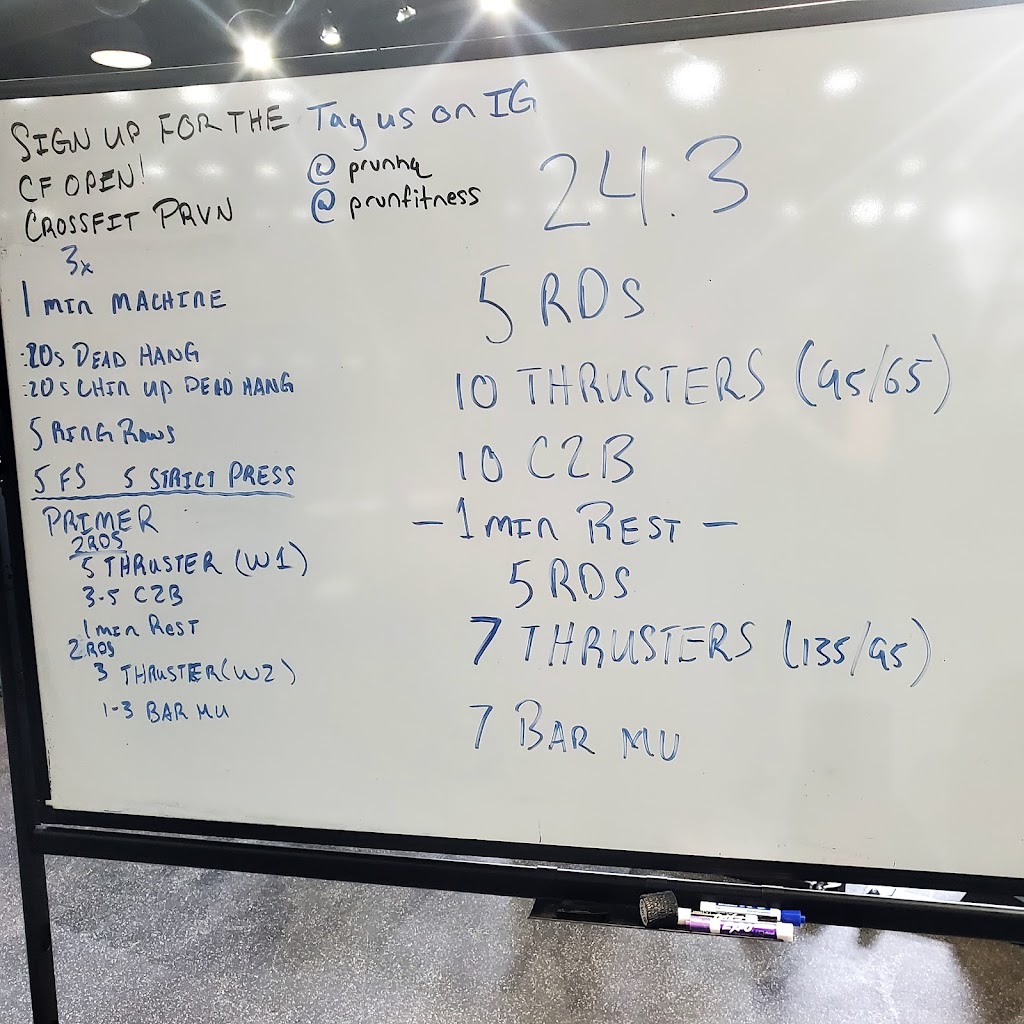 SIGN UP FOR THE
CF OPEN!
CROSSFIT PRVN
Tag us on IG
@ prvnhq
@ prvnfitness
3x
1 min MACHINE
:20s DEAD HANG
:20s CHIN UP DEAD HANG
5 RING ROWS
5 FS 5 STRICT PRESS
PRIMER
2RDS
5 THRUSTER (W1)
3-5 C2B
1 min REST
2RDS
3 THRUSTER (W2)
1-3 BAR MU
24.3
5 RDS
10 THRUSTERS (95/65)
10 C2B
- 1 min REST -
5 RDS
7 THRUSTERS (135/95)
7 BAR MU
EXPO